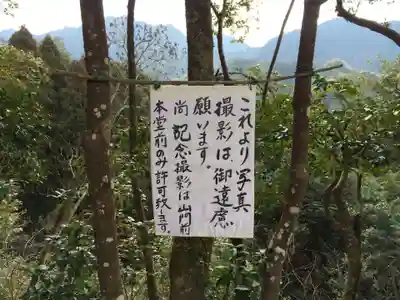 これより写真
撮影は、御遠慮
願います。
尚 記念撮影は山門前
本堂前のみ許可致します。